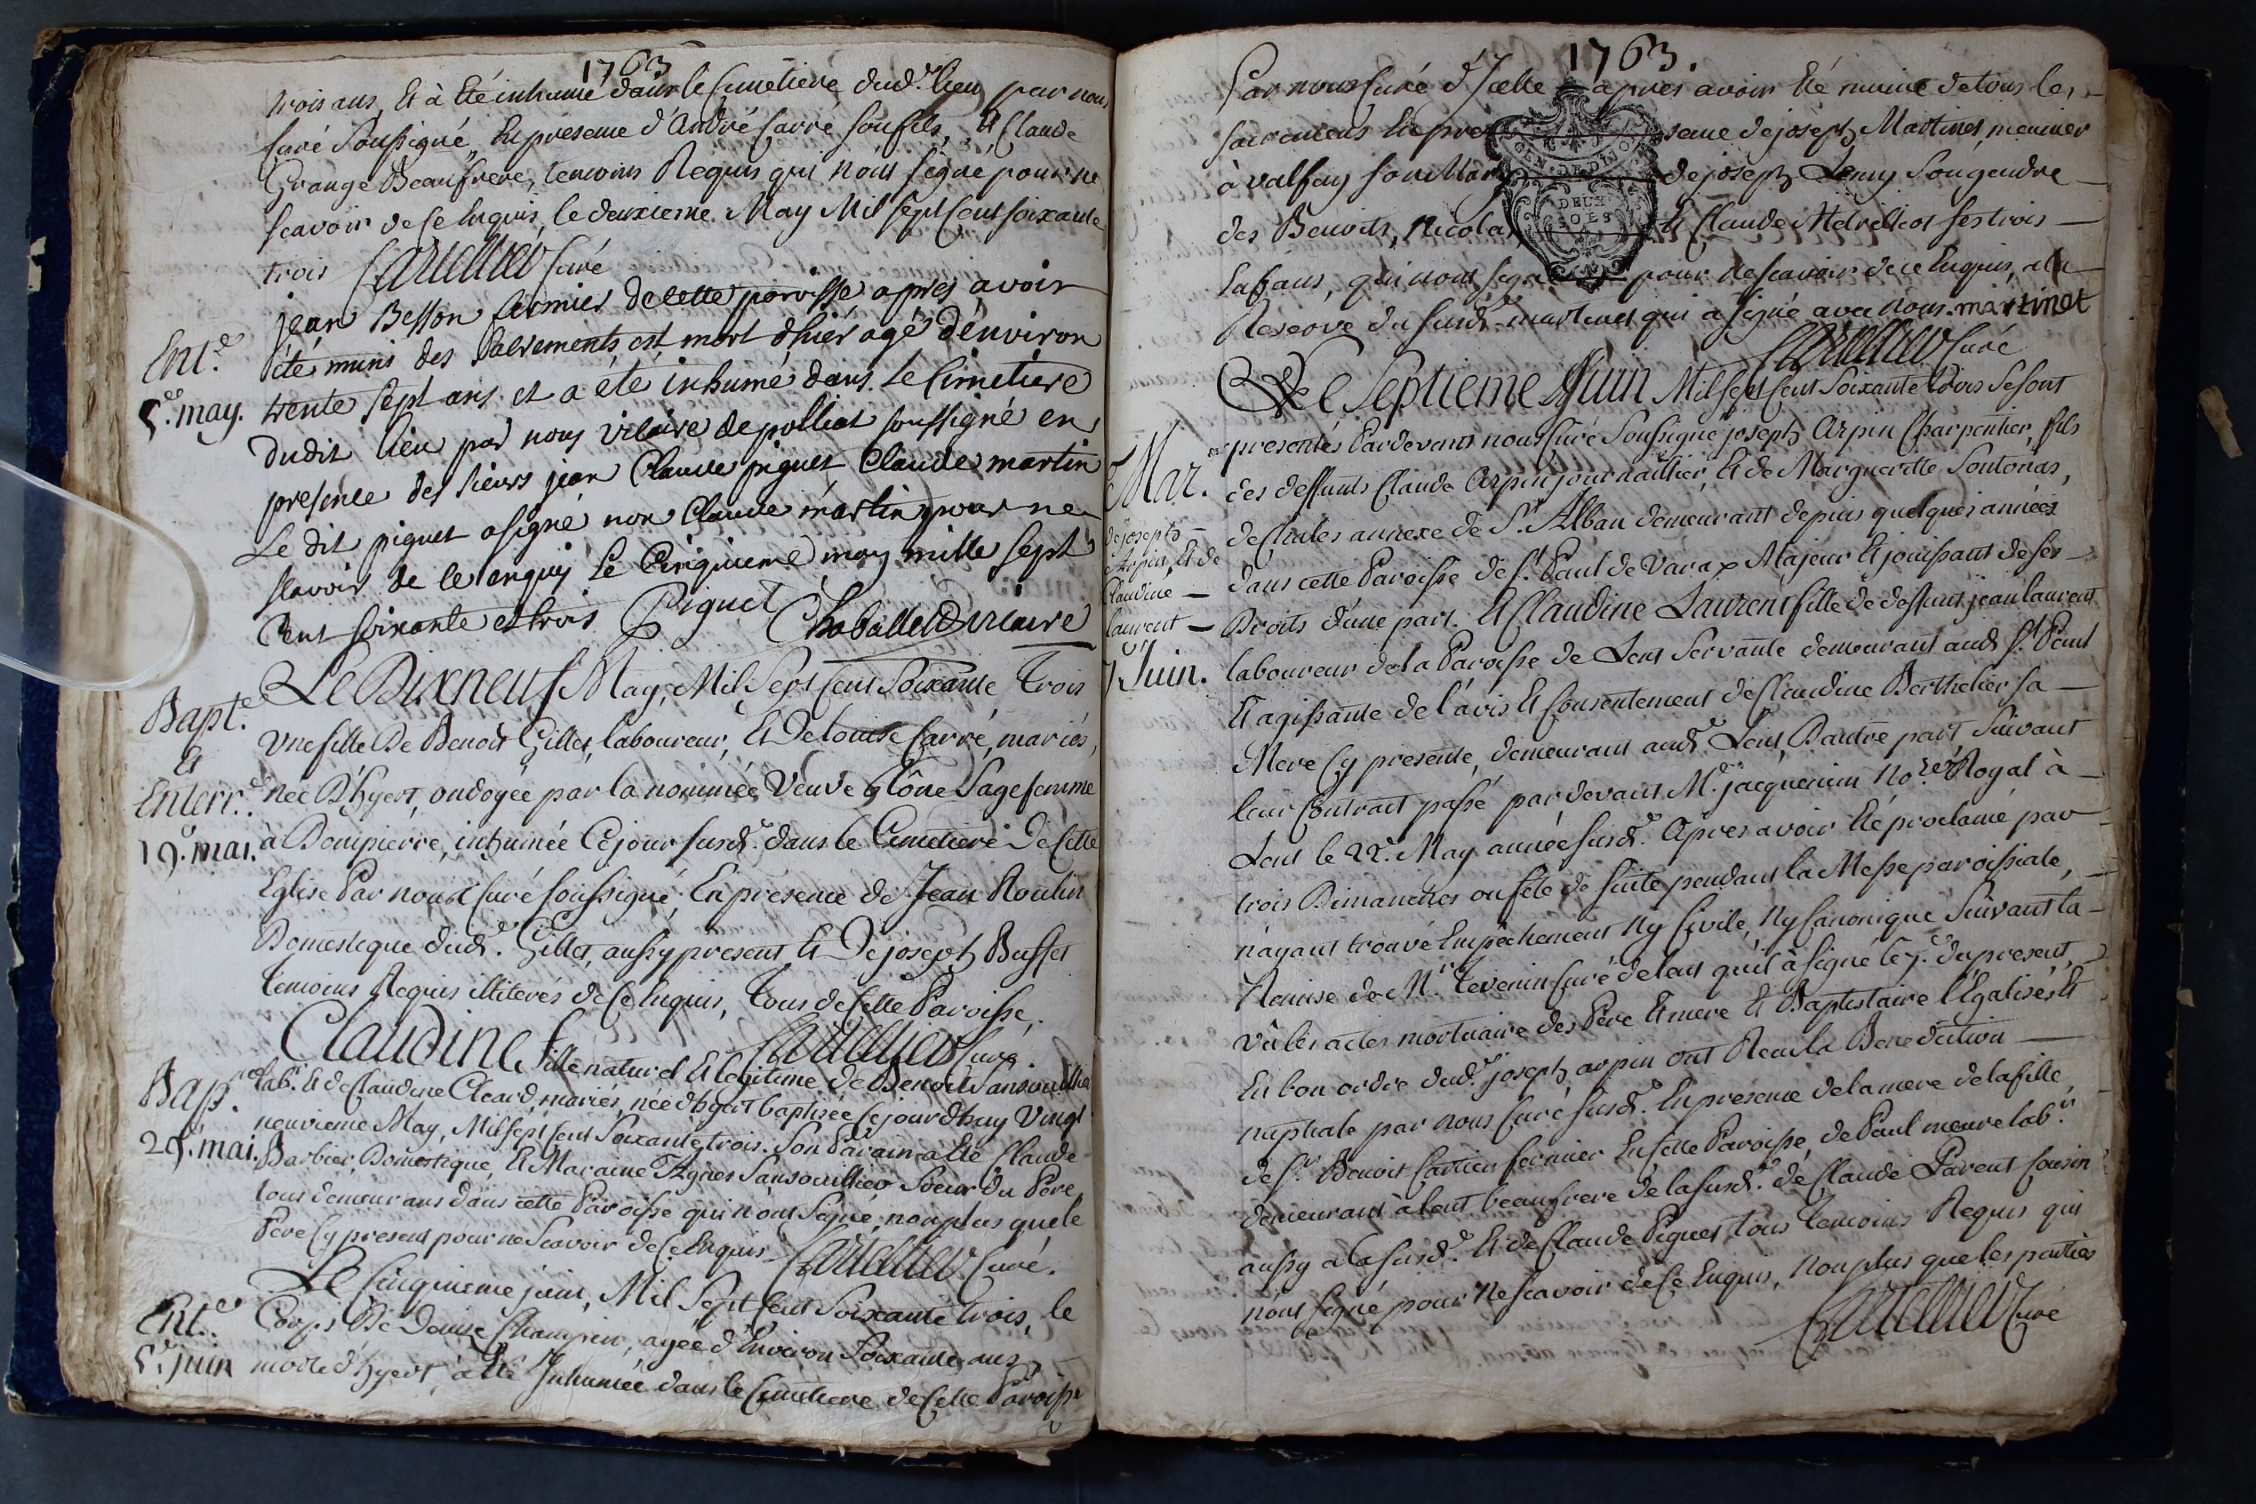 1763
trois ans, Et à Eté inhumé dans le Cimetiere dud.t lieu par nous
Curé Soussigné, En presence d'André Carré son fils, Et Claude
Grange Beaufrere, temoins Requis qui n'ont signé pour ne
scavoir de ce Enquis, le deuxieme May Mil sept cent soixante
trois Cartellier Curé
Ent.d
5.e may.
jean Besson fermier de cette paroisse apres avoir
été muni des Sacrements est mort dhier agé d'environ
trente sept ans et a été inhumé dans Le Cimetiere
dudit lieu par nous vicaire de polliat soussigné en
presence des sieurs jean Claude piguet Claude martin
Le dit piguet a signé non Claude martin pour ne
scavoir de ce enquis Le Cinquieme may mille sept
Cent soixante et trois Piguet Vicaire
Bapt.e
Et
Enterr.d
19. mai.
Le Dixneuf May, Mil Sept Cent Soixante Trois
Une fille De Benoit Gillet, laboureur, Et De louise Carré, mariés,
née D'hyert, ondoyée par la nommée Veuve Sagefemme
à Dompierre, inhumée Cejour susd.t dans le Cimetiere De Cette
Eglise Par nous Curé soussigné, En présence de Jean Roulin
Domestique dud.t Gillet, aussy present, Et De joseph Buffet
temoins Requis illiterés de Ce Enquis, Tous de Cette Paroisse,
Cartellier Curé.
Bap.
29. mai.
Claudine, fille naturel Et legitime de Benoit Sansouillier
lab.r Et de Claudine Cleard, mariés, née d'hyert baptisée Cejourdhuy Vingt
neuvieme May, Mil Sept Cent Soixante trois. Son Parain a Eté Claude
Barbier Domestique, Et Maraine Agnes Sansouillier Soeur Du Pere
tous demeurans dans cette Paroisse qui n'ont Signé, nonplus que le
Pere Cy present pour ne Scavoir de Ce Enquis Cartellier Curé.
Ent.d
5.e juin
Le Cinquieme juin, Mil Sept Cent Soixante trois, le
Corps De Denise Champin, agée d'Environ Soixante ans,
morte d'hyert, à Eté Inhumée dans le Cimetiere de Cette Paroisse
1763.
Par nous Curé d'Icelle apres avoir Eté munie de tous les
sacremens En pre sence de joseph Martinet meunier
GEN. DE DIJON
DEUX SOLS
à valfay son Mary de joseph Son gendre
des Benoit, Nicolas Et Claude ses trois
Enfans, qui nont signé pour ne scavoir de ce Enquis, a la
Reserve du susd.t martinet qui a signé avec nous. martinet
Cartellier Curé
Mar.
de joseph
Arpin, Et de
Claudine
laurent
7 Juin.
Le Septieme Juin Mil Sept Cent Soixante trois Se sont
presentés Pardevant nous Curé Soussigné joseph Arpin Charpentier, fils
des deffunts Claude Arpin journaillier, Et de Marguerette Soutonas,
de Chales annexe de S.t Alban demeurant depuis quelques années
dans cette Paroisse de S.t Paul de Varax Majeur Et jouissant de ses
Droits d'une part. Et Claudine Laurent fille de deffunt jean laurent
laboureur de la Paroisse de Lent Servante demeurant aud.t S.t Paul
Et agissante de l'avis Et Consentement de Claudine Berthelier sa
Mere Cy presente, demeurant aud.t Lent, D'autre part Suivant
leur Contract passé par devant M.e jacquemin No.re Royal à
Lent le 22.e May année susd.e Apres avoir Eté proclamé par
trois Dimanches ou fete de suite pendant la Messe paroissiale,
n'ayant trouvé Empechement Ny Civile, Ny Canonique Suivant la
Remise de M.r Tevenin Curé de lent qu'il à signé le 7.e du present,
Vu les actes mortuaire des Pere Et mere Et Baptistaire legalisés Et
En bon ordre dud.t joseph arpin ont Recu la Benediction
nuptiale par nous Curé susd.t En presence de la mere de la fille,
de S.r Benoit Cartier fermier En Cette Paroisse, de Paul meure lab.r
demeurant à lent beaufrere de la susd.e de Claude Parent Cousin
aussy a la susd.e Et de Claude Piguet, tous Temoins Requis qui
nont signé pour Ne scavoir de Ce Enquis, Nonplus que les parties
Cartellier Curé